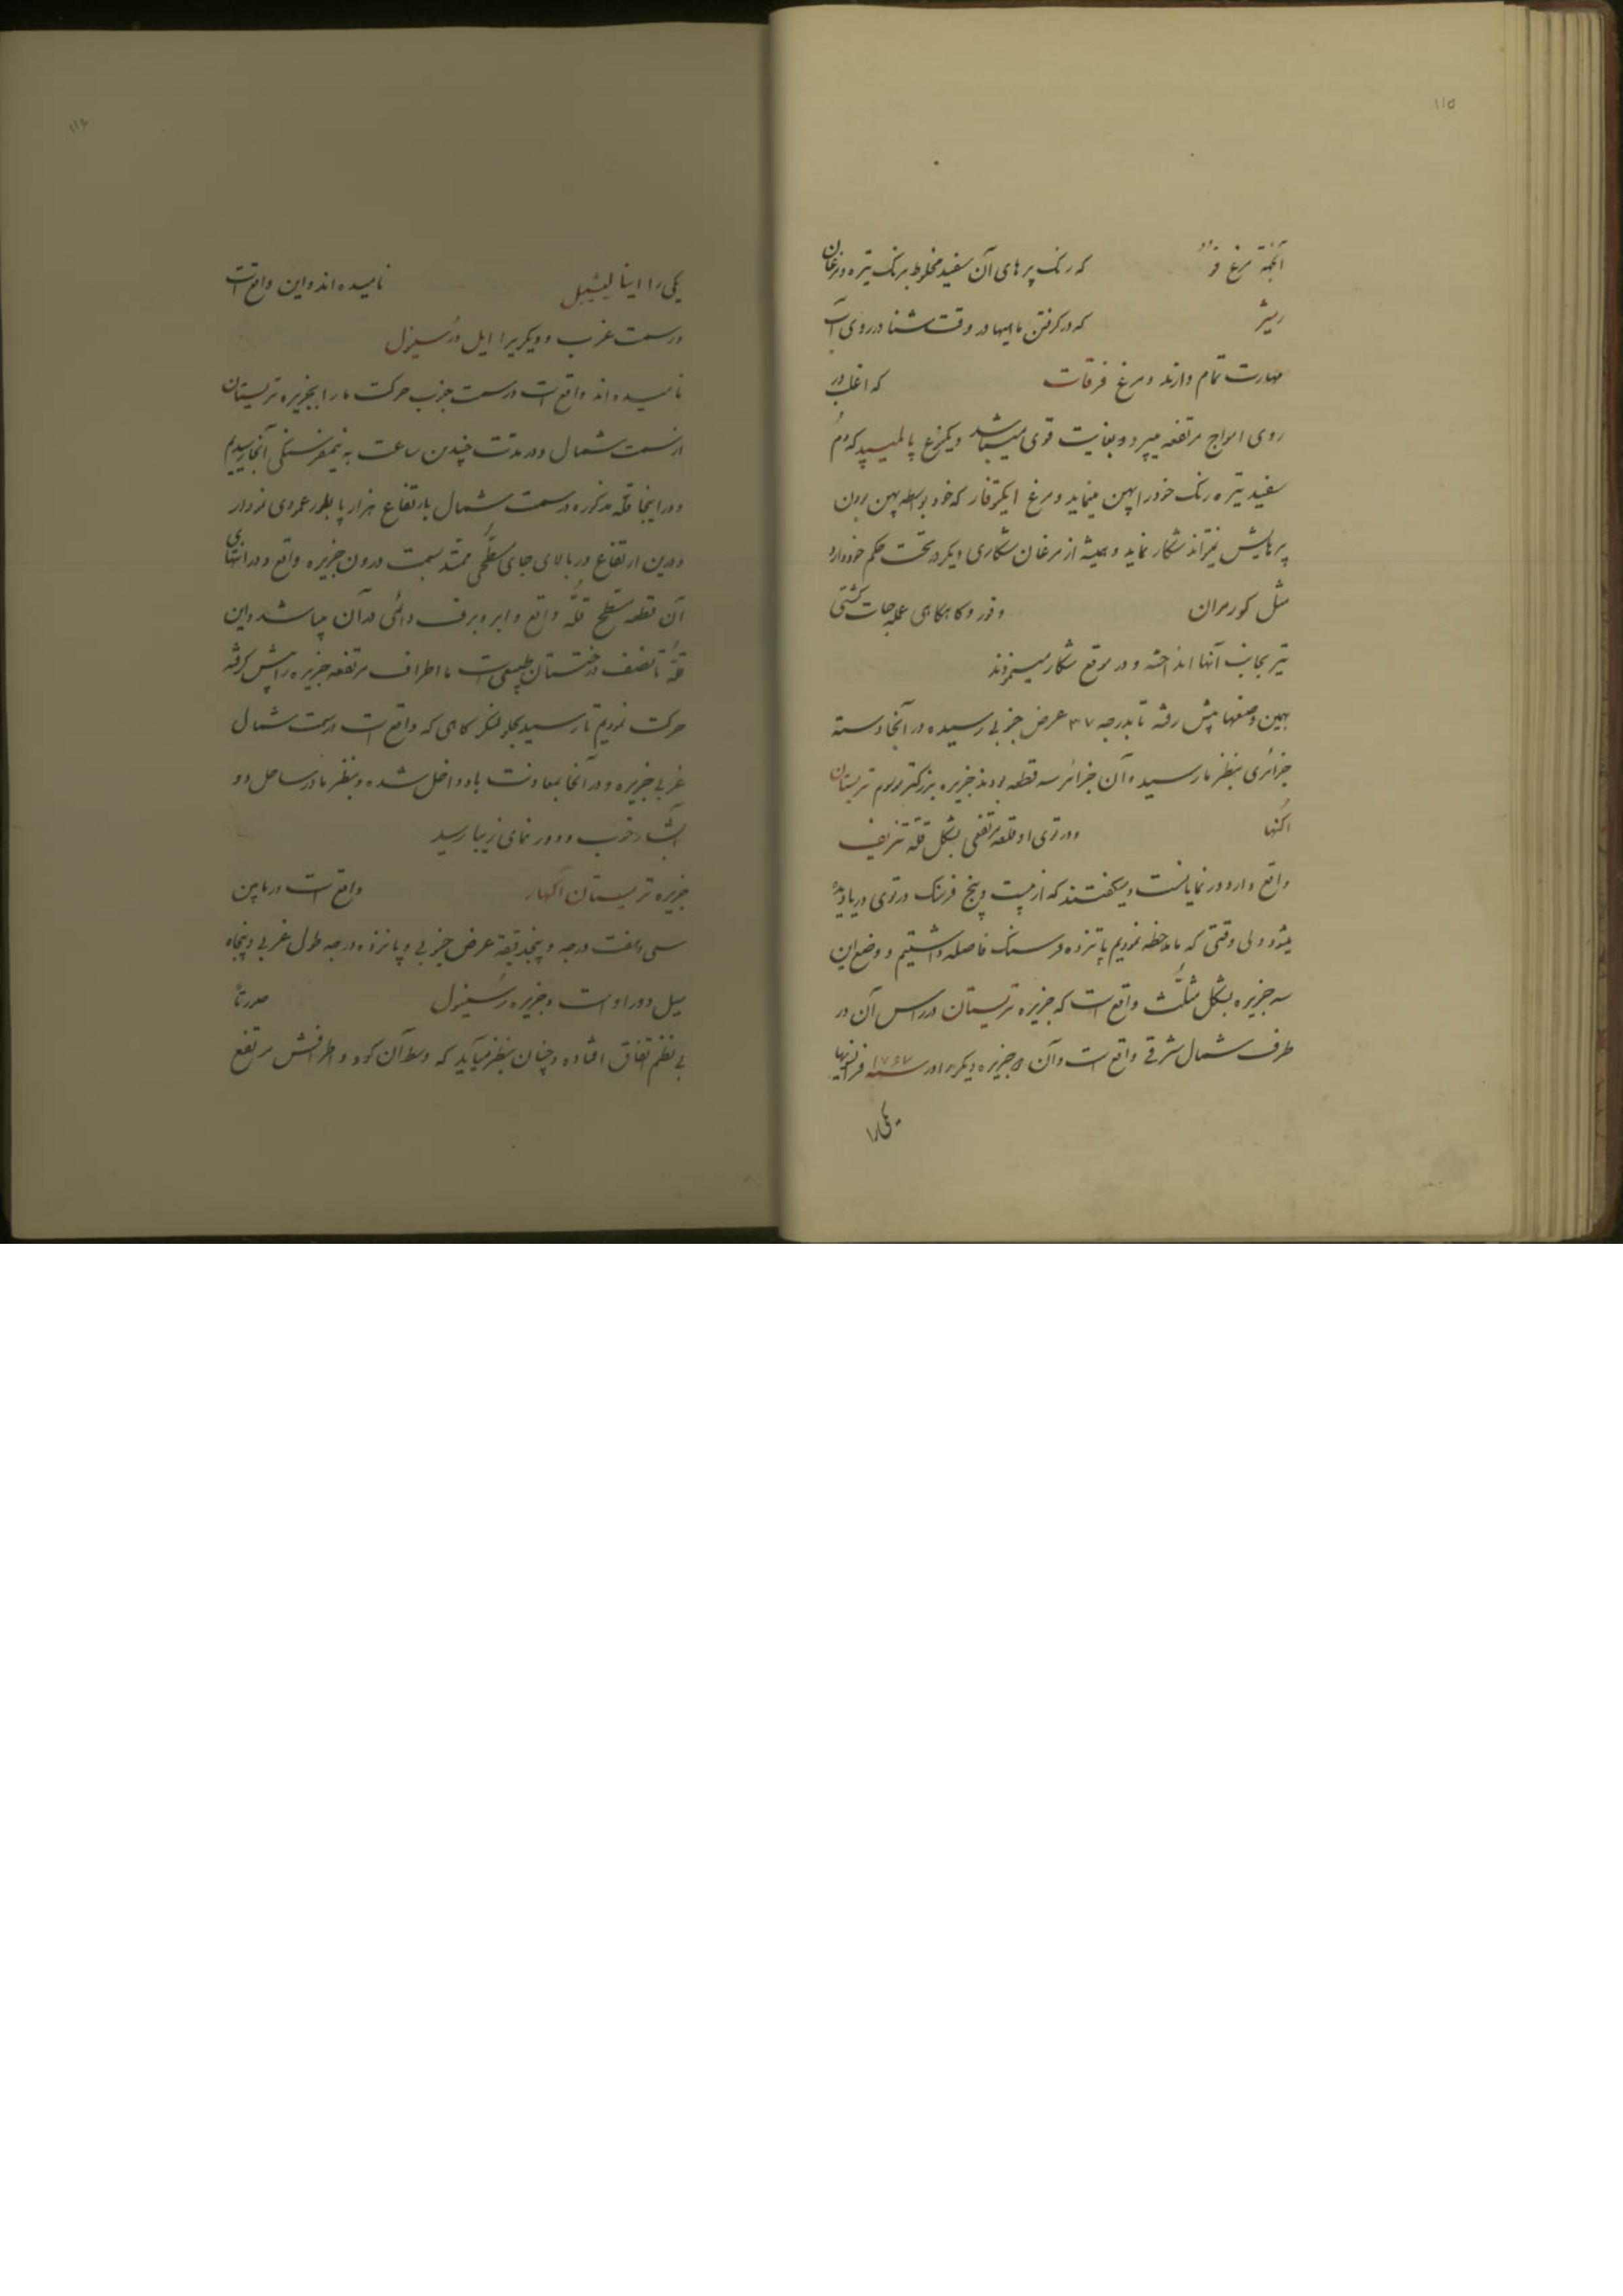 ۱۱۵
آنجمله مرغ فو که رنک پرهای آن سفید مخلوط برنک تیره و مرغان
که در کرفتن ماهیها در وقت شنا در روی آب
مهارت تمام دارند و مرغ فرقات که اغلب در
روی امواج مرتفعه میپرد و بغایت قوی میباشد دیکر مرغ که دم
سفید تیره رنک خود را پهن مینماید و مرغ که خود بواسطه پهن بودن
پرهایش نمیتواند شکار نماید و همیشه از مرغان شکاری دیکر در تحت حکم خود دارد
مثل کورمران و فور و کاهکاهی عمله جات کشتی
تیر بجانب آنها انداخته و در موقع شکار مینمودند
بهمین وضعها پیش رفته تا بدرجه ۳۷ عرض جنوبی رسیده در آنجا دسته
جزائری بنظر ما رسید و آن جزائر سه قطعه بودند جزیره بزرکتر موسوم تریستان
اکنها و در توی او قلعه مرتفعی بشکل قله
واقع دارد و نمایانست و میکفتند که از بیست و پنج فرسنک در توی دریا دیده
میشود ولی وقتی که ملاحظه نمودیم پانزده فرسنک فاصله داشتیم و وضع این
سه جزیره بشکل مثلث واقع است که جزیره تریستان در راس آن در
طرف شمال شرقی واقع است و آن دو جزیره دیکر را در سنه ۱۷۶۷ فرانسویها
یکی را
۱۱۶
یکی را نامیده اند و این واقع است
در سمت غرب و دیکریرا ایل در سینول
نامیده اند واقع است در سمت جنوب حرکت ما را بجزیره تریستان
از سمت شمال و در مدت چندین ساعت به نیمفرسنکی آنجا رسیدیم
و در اینجا قله مذکوره در سمت شمال بارتفاع هزار پا بطور عمودی نمودار
و درین ارتفاع در بالای جای مسطحی ممتد بسمت درون جزیره واقع و در انتهای
آن قطعه مسطح قله واقع و ابر و برف دائمی در آن میباشد و این
قله تا نصف درختستان طبیعی است ما اطراف مرتفعه جزیره را پیش کرفته
حرکت نمودیم تا رسیدیم بجلو لنکرکاهی که واقع است در سمت شمال
غربی جزیره و در آنجا بمعاونت باد داخل شده و بنظر ما در ساحل دو
آبشار خوب و دورنمای زیبا رسید
جزیره تریستان اکنهار واقع است در مابین
سی و هفت درجه و پنجدقیقه عرض جنوبی و پانزده درجه طول غربی و پنجاه
میل دور او است و جزیره رسینول صورتاً
بی نظم اتفاق افتاده و چنان بنظر میآید که وسط آن کود و اطرافش مرتفع